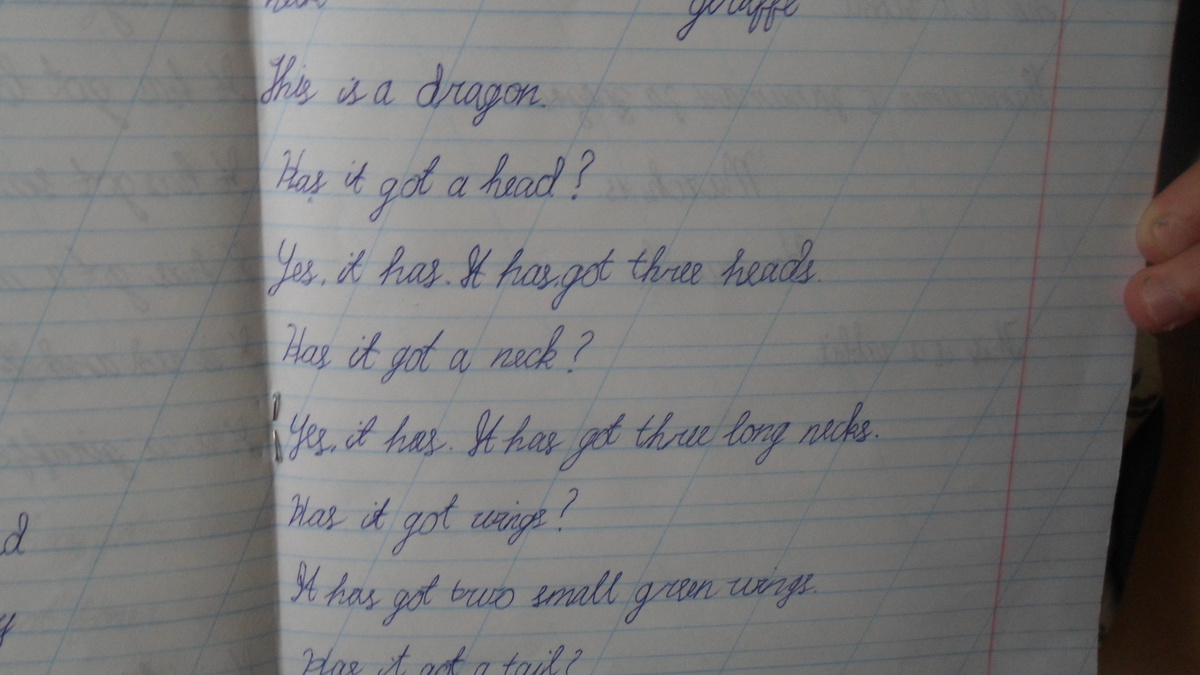 neck giraffe
This is a dragon.
Has it got a head?
Yes, it has. It has got three heads.
Has it got a neck?
Yes, it has. It has got three long necks.
Has it got wings?
It has got two small green wings.
Has it got a tail?